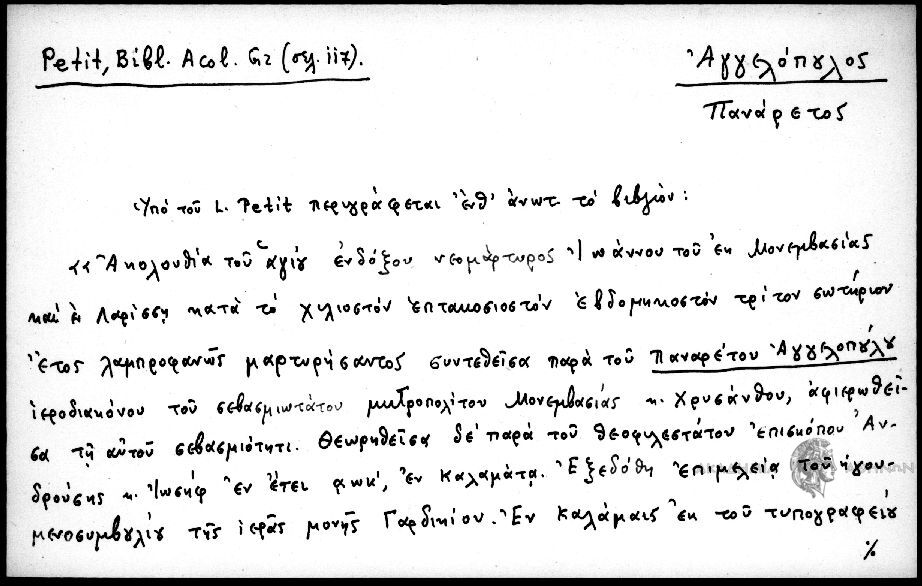 Petit, Bibl. Acol. Gr (σελ. 117).
Ἀγγελόπουλος
Πανάρετος
Ὑπό τοῦ L. Petit περιγράφεται ἐνθ' ἀνωτ. τό βιβλίον:
«Ἀκολουθία τοῦ ἁγίου ἐνδόξου νεομάρτυρος Ἰωάννου τοῦ ἐκ Μονεμβασίας
καί ἐν Λαρίσσῃ κατὰ τό χιλιοστόν ἑπτακοσιοστόν ἑβδομηκοστόν τρίτον σωτήριον
ἔτος λαμπροφανῶς μαρτυρήσαντος συντεθεῖσα παρά τοῦ Παναρέτου Ἀγγελοπούλου
ἱεροδιακόνου τοῦ σεβασμιωτάτου μητροπολίτου Μονεμβασίας κ. Χρυσάνθου, ἀφιερωθεῖ-
σα τῇ αὐτοῦ σεβασμιότητι. Θεωρηθεῖσα δέ παρά τοῦ θεοφιλεστάτου ἐπισκόπου Ἀν-
δρούσης κ. Ἰωσήφ ἐν ἔτει αωκ', ἐν Καλαμάτᾳ. Ἐξεδόθη ἐπιμελείᾳ τοῦ ἡγου-
μενοσυμβούλίου τῆς ἱερᾶς μονῆς Γαρδικίου. Ἐν Καλάμαις ἐκ τοῦ τυπογραφείου
%